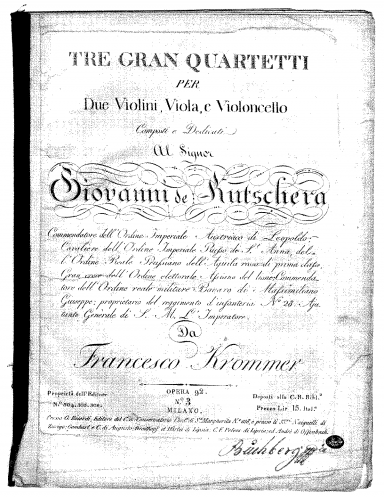 TRE GRAN QUARTETTI
PER
Due Violini, Viola, e Violoncello
Composti e Dedicati
Al Signor
Giovanni de Kutschera
Commendatore dell'Ordine Imperiale Austriaco di Leopoldo,
Cavaliere dell'Ordine Imperiale Russo di St. Anna, del-
l'Ordine Reale Prussiano dell'Aquila rossa di prima classe
Gran croce dell'Ordine elettorale Assiano del Leone, Commenda-
tore dell'Ordine reale militare Bavaro di Massimiliano
Giuseppe; proprietario del reggimento d'infanteria No. 28. Aju-
tante Generale di S. M. L'Imperatore.
Da
Francesco Krommer
Proprietà dell'Editore
OPERA 92.
Deposti alla C. R. Bibl.a
No. 3
Prezzo Lir. 15. Ital.e
MILANO.
Presso G. Ricordi, Editore del C. R. Conservatorio
Lipsia
Offenbach